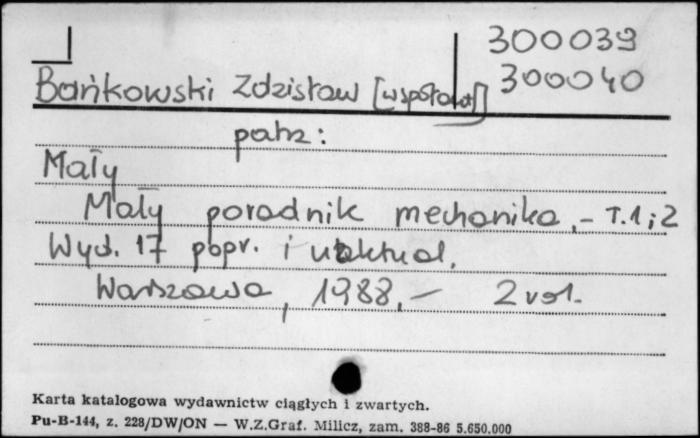 300039
300040
Bańkowski Zdzisław [współaut]
patrz:
Mały
Mały poradnik mechanika.- T.1;2
Wyd. 17 popr. i uaktual.
Warszawa, 1988.- 2 vol.
Karta katalogowa wydawnictw ciągłych i zwartych.
Pu-B-144, z. 228/DW/ON — W.Z.Graf. Milicz, zam. 388-86 5.650.000